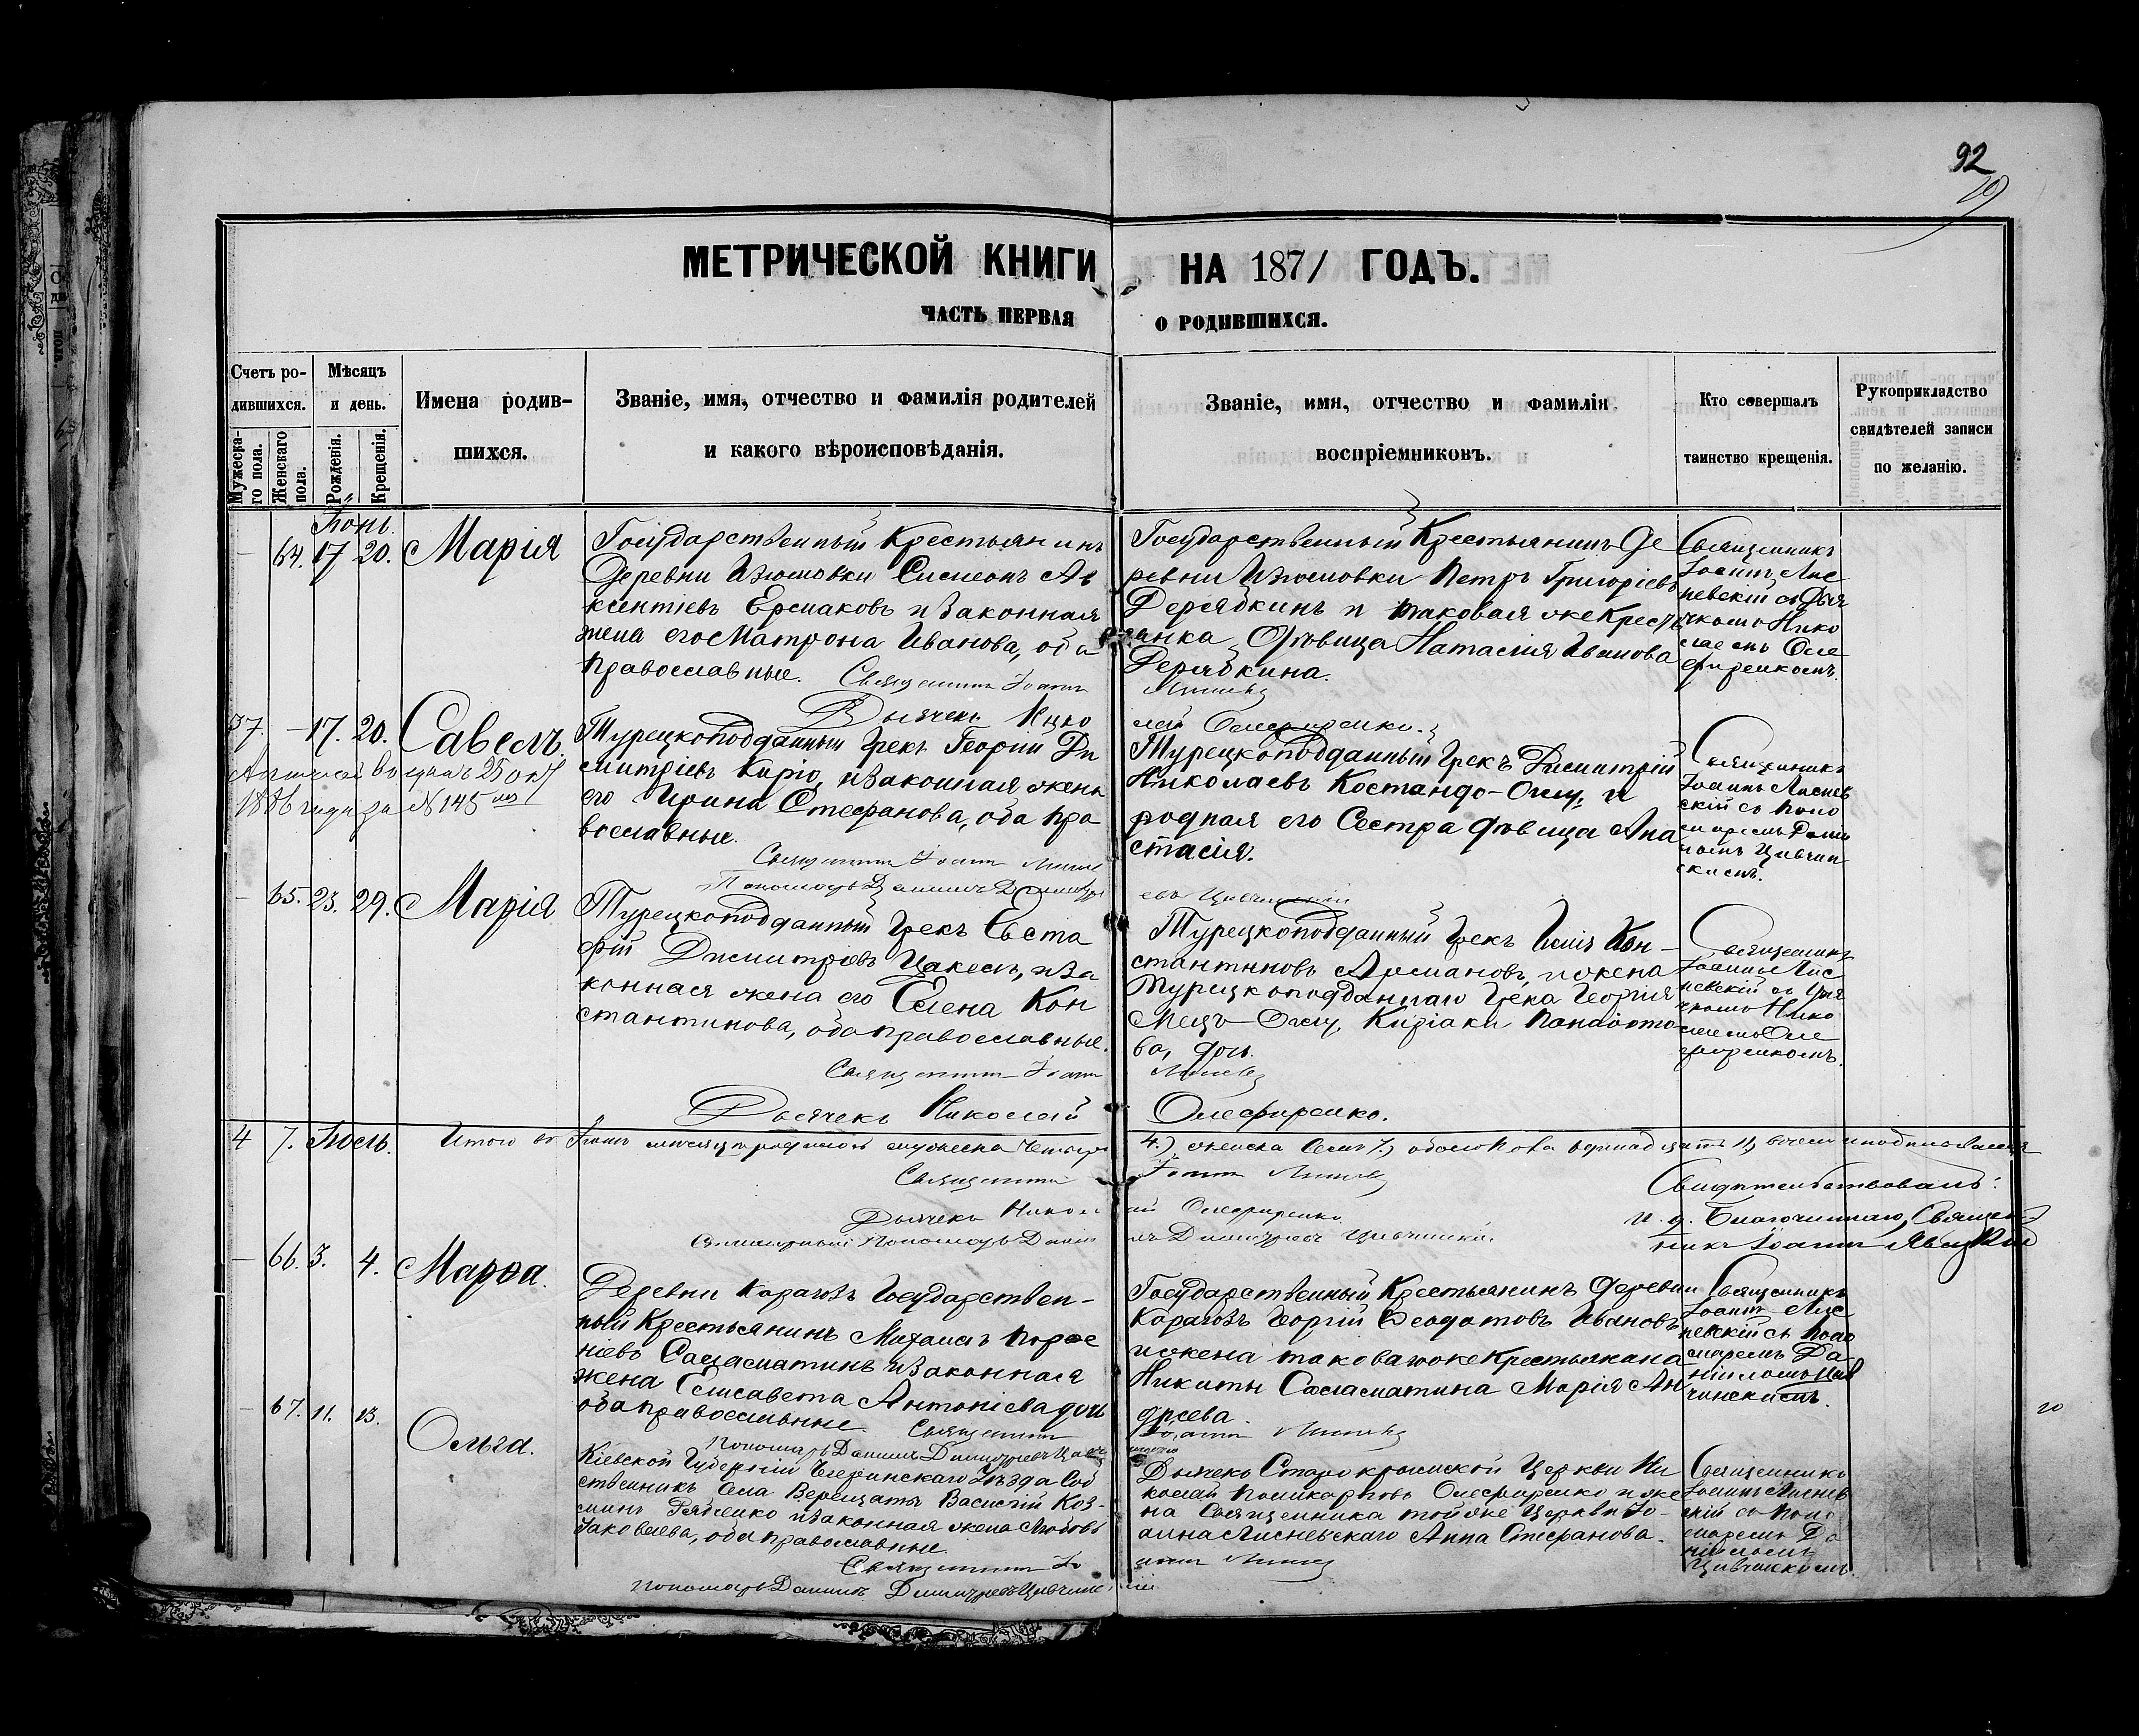 92
МЕТРИЧЕСКОЙ КНИГИ НА 1871 ГОДЪ.
ЧАСТЬ ПЕРВАЯ О РОДИВШИХСЯ.
Счетъ ро-
дившихся.
Мужеска-
го пола.
Женскаго
пола.
Мѣсяцъ
и день.
Рожденія.
Крещенія.
Имена родив-
шихся.
Званіе, имя, отчество и фамилія родителей
и какого вѣроисповѣданія.
Званіе, имя, отчество и фамилія
воспріемниковъ.
Кто совершалъ
таинство крещенія.
Рукоприкладство
свидѣтелей записи
по желанію.
Іюнь
— 64. 17 20. Марія
Государственный Крестьянинъ
Деревни Изюмовки Симеонъ Ав
ксентіевъ Ермаковъ и законная
жена его Матрона Иванова, оба
православные.
Священникъ Іоаннъ
Дьячекъ Нико
Государственный Крестьянинъ Де
ревни Изюмовки Петръ Григоріевъ
Дерябкинъ и таковая же Крест
янка Дѣвица Наталія Иванова
Дерябкина.
лай Олефиренко.
Священникъ
Іоаннъ Лис
невскій съ Дья
чкомъ Нико
лаемъ Оле
фиренкомъ.
37. — 17. 20. Савелъ.
1886 года за № 145
Турецкоподданный Грекъ Георгій Ди
митріевъ Киріо, и законная жена
его Ирина Стефанова, оба пра
вославные.
Священникъ Іоаннъ
Пономарь Даніилъ Димитрі
Турецкоподданный Грекъ Димитрій
Николаевъ Костандо-Оглу, и
родная его Сестра дѣвица Ана
стасія.
евъ Цивчинскій
Священникъ
Іоаннъ Лиснев
скій съ Поно
маремъ Дані
ломъ Цивчин
скимъ.
— 65. 23. 29. Марія
Турецкоподданный Грекъ Евста
фій Димитріевъ Цакелъ, и за
конная жена его Елена Кон
стантинова, оба православные.
Священникъ Іоаннъ
Дьячекъ Николай
Турецкоподданный Грекъ Илія Кон-
стантиновъ Арслановъ, и жена
Турецкоподданнаго Грека Георгія
Оглу, Киріаки Панаіото
ва, дочь.
Олефиренко.
Священникъ
Іоаннъ Лис
невскій съ Дья
чкомъ Нико
лаемъ Оле
фиренкомъ.
4 7. Іюль.
Итого въ Іюнѣ мѣсяцѣ родилось мужеска Четыре
4.) женска Семь 7.) обоего пола одинадцать 11,
Священникъ
Іоаннъ
Дьячекъ Никол
ай Олефиренко
Пономарь Даніи
лъ Димитріевъ Цивчинскій.
Свидѣтельствовалъ:
и. д. Благочиннаго, Священ
никъ Іоаннъ
— 66. 3. 4. Марѳа.
Деревни Карагозъ Государствен-
ный Крестьянинъ Михаилъ Порфе
ніевъ Саламатинъ и законная
жена Елисавета Антоніева дочь
оба православные.
Священникъ
Пономарь Даніилъ Димитріевъ
Государственный Крестьянинъ Деревни
Карагозъ Георгій Ѳеодотовъ Ивановъ
и жена таковагоже Крестьянина
Никиты Саламатина Марія Ан
дреева.
Іоаннъ
Священникъ
Іоаннъ Лис
невскій съ Поно
маремъ Да
ніиломъ Цив
чинскимъ.
— 67. 11. 13. Ольга.
Кіевской Губерніи Чигринскаго Уѣзда Соб
ственникъ Села Верещатъ Василій Коз-
минъ и законная жена Любовь
Іаковлева, оба православные.
Священникъ Іо
Пономарь Даніилъ Димитріевъ Цивчинс
Дьячекъ Старокрымской Церкви Ни
колай Поликарповъ Олефиренко и же
на Священника той же Церкви Іо-
анна Лисневскаго Анна Стефанова.
аннъ
кій
Священникъ
Іоаннъ Лиснев
скій съ Поно
маремъ Да
ніиломъ
Цивчинскимъ.